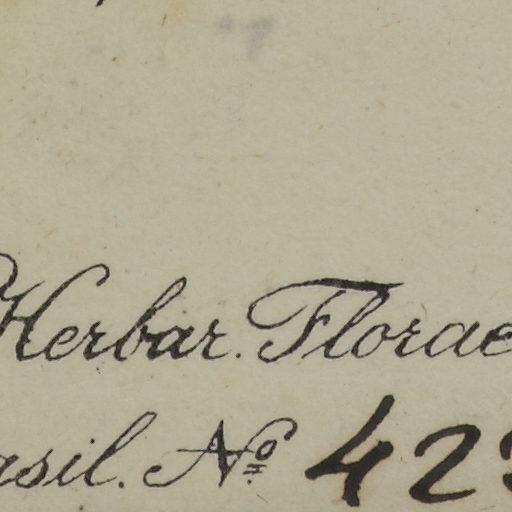 Herbar. Florae
asil. Nº 42